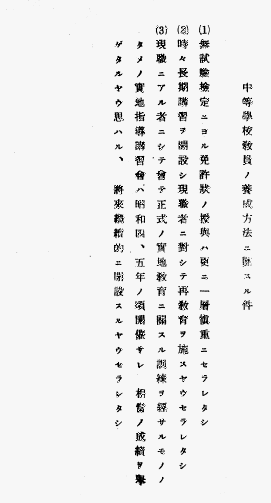 中等學校教員ノ養成方法ニ關スル件
(1) 無試驗檢定ニヨル免許狀ノ授與ハ更ニ一層愼重ニセラレタシ
(2) 時々長期講習ヲ開設シ現職者ニ對シテ再敎育ヲ施スヤウセラレタシ
(3) 現職ニアル者ニシテ曾テ正式ノ實地敎育ニ關スル訓練ヲ經サルモノノ
タメノ實地指導講習會ハ昭和四、五年ノ頃開催サレ相當ノ成績ヲ擧
ゲタルヤウ思ハル、將來繼續的ニ開設スルヤウセラレタシ